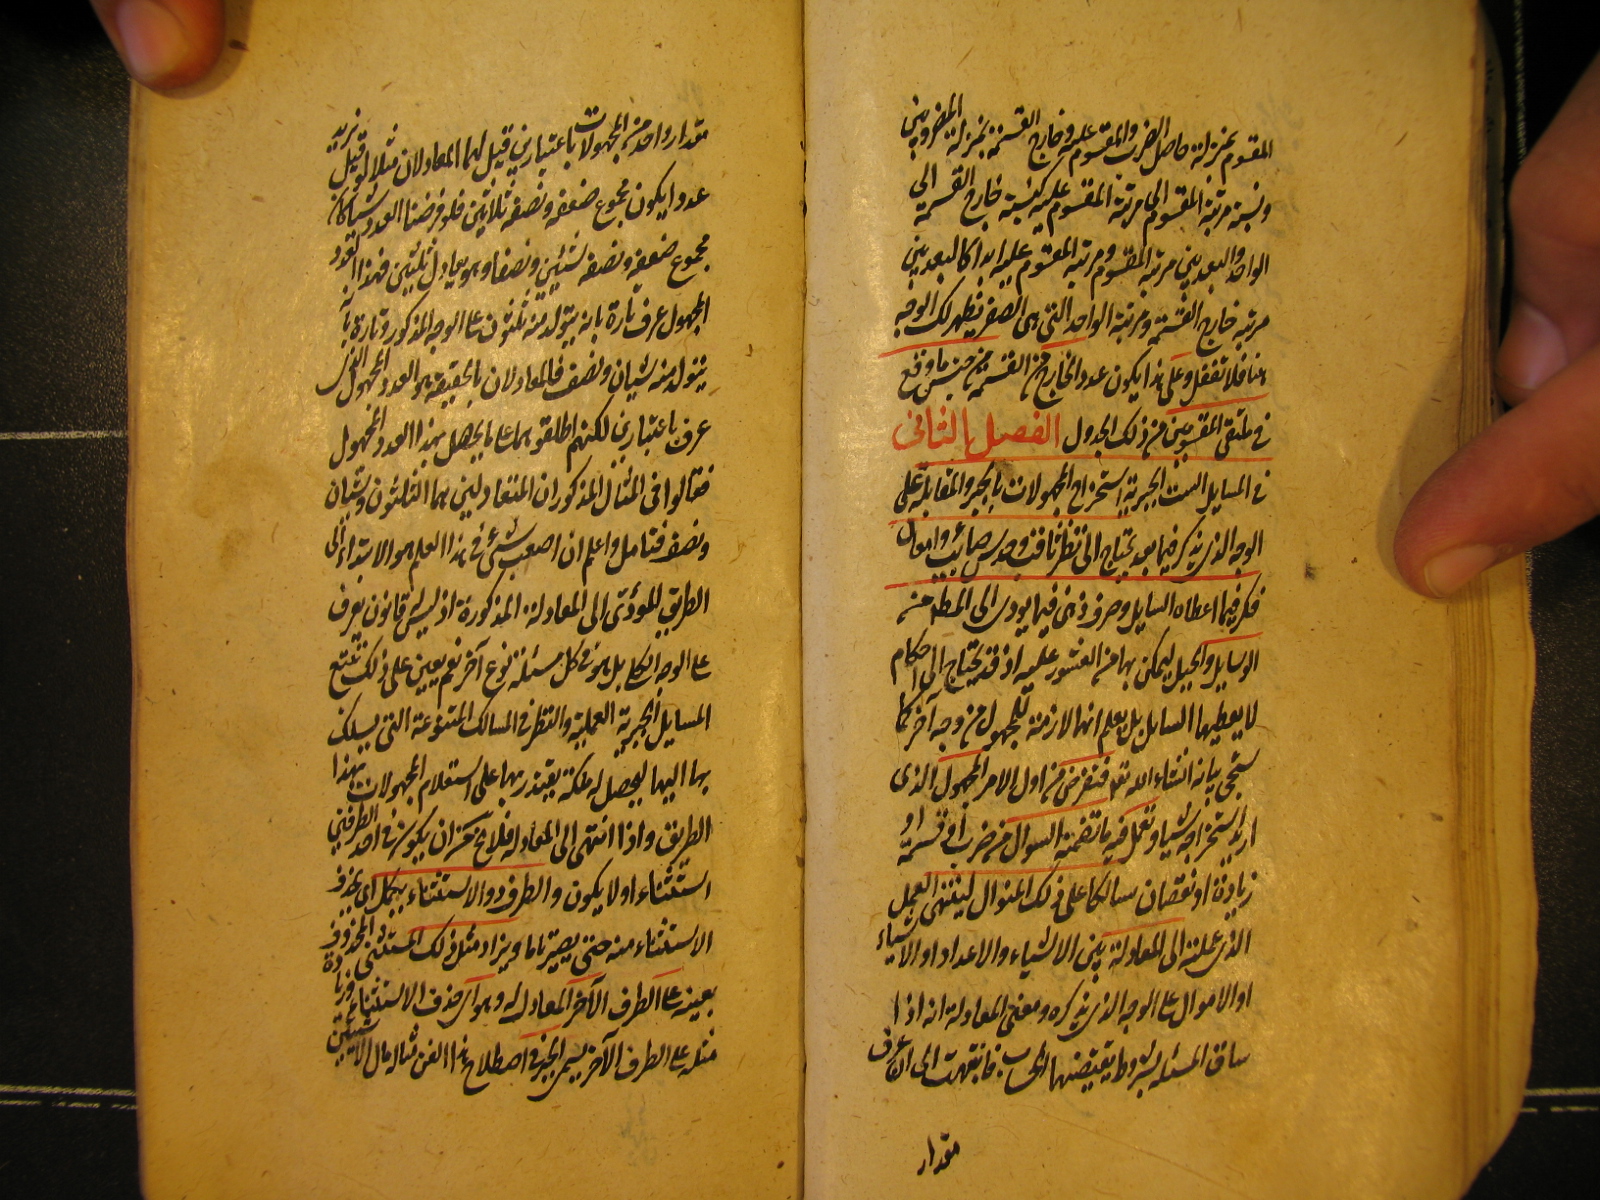 المقسوم بمنزلة حاصل الضرب والمقسوم عليه وخارج القسمة بمنزلة المضروبين
ونسبة مرتبة المقسوم الى مرتبة المقسوم عليه كنسبة خارج القسمة الى
الواحد والبعد بين مرتبة المقسوم ومرتبة المقسوم عليه ابدا كالبعد بين
مرتبة خارج القسمة ومرتبة الواحد التي هي الصفر يظهر لك الوجه
هنا فلا تغفل وعلى هذا يكون عدد الخارج من القسمة من جنس ما وقع
في ملتقى المقسومين من ذلك الجدول الفصل الثاني
في المسايل الست الجبرية استخراج المجهولات بالجبر والمقابلة على
الوجه الذي يذكر فيما بعد يحتاج الى نظر ثاقب وحدس صايب وامعان
فكر فيما اعطاه السايل وصرف ذهن فيما يودى الى المطلـ منه
الوسايل والحيل ليمكن بها من العثور عليه اذ قد يحتاج الى احكام
لا يعطيها السايل بل يعلم انها لازمة للمجهول من وجه آخر كما
ستجئ بيانه انشاء الله تعـ فتفرض من اول الامر المجهول الذي
اريد استخراجه شيا وتعمل فيه ما تضمنه السوال من ضرب او قسمة او
زيادة او نقصان سالكا على ذلك المنوال لينتهى العمل
الذى عملته الى المعادلة بين الاشياء والاعداد او الاشياء
او الاموال على الوجه الذي يذكره ومعنى المعادلة انه اذا
ساق المسئلة بشروط يقتضيها الحساب فانتهت الى ان عرف
مقدار
مقدار واحد من المجهولات باعتبارين قيل لهما المعادلان مثلا لو قيل نريد
عددا يكون مجموع ضعفه ونصفه ثلاثين فلو فرضنا العدد شيئا كان
مجموع ضعفه ونصفه شيئين ونصفا وهو يعادل ثلثين فهذا العدد
المجهول عرف تارة بانه يتولد منه ثلثون على الوجه المذكور وتارة بانه
يتولد منه شيان ونصف فالمعادلان بالحقيقة هو العدد المجهول الذى
عرف باعتبارين لكنهم اطلقوهما على ما يحصل بهذا العدد المجهول
فقالوا في المثال المذكور ان المتعادلين هما الثلثون وشيان
ونصف فتامل واعلم ان اصعب شئ في هذا العلم هو الابتداء الى
الطريق المودى الى المعادلة المذكورة اذ ليس له قانون يعرف
على الوجه الكلى بل هو في كل مسئلة نوع آخر نعم يعين على ذلك تتبع
المسايل الجبرية العملية والنظر في المسالك المتنوعة التى يسلك
بها اليها ليحصل له ملكة يقتدر بها على استعلام المجهولات بهذا
الطريق واذا انتهى الى المعادلة فلا يخ من ان يكون في احد الطرفين
استثناء او لا يكون والطرف ذو الاستثناء يكمل اى يحذف
الاستثناء منه حتى يصير تاما ويزاد مثل ذلك المستثنى المحذوف
بعينه على الطرف الآخر المعادل له وهو اى حذف الاستثناء وزيادة
مثله على الطرف الآخر يسمى الجبر في اصطلاح هذا الفن مثاله مال الا شيئين